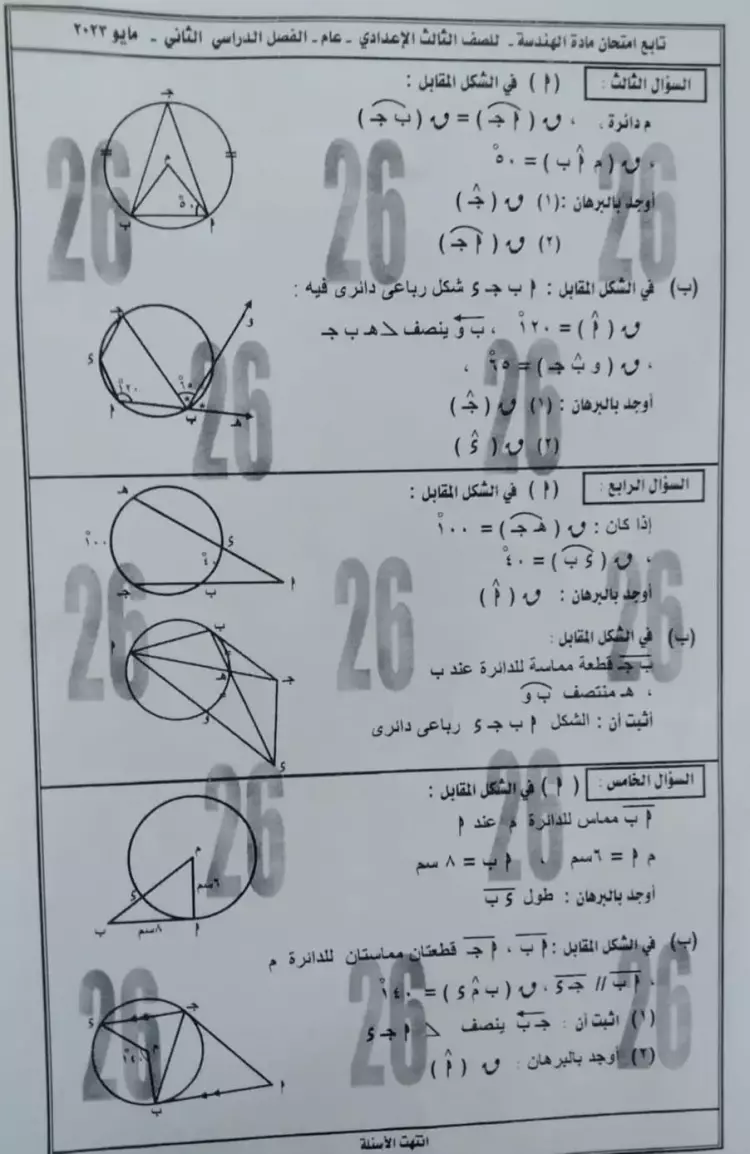 تابع امتحان مادة الهندسة - للصف الثالث الإعدادي - عام - الفصل الدراسى الثاني - مايو ٢٠٢٣
السؤال الثالث : ( أ ) في الشكل المقابل :
م دائرة ، ، ق ( أ جـ ) = ق ( ب جـ )
، ق ( م أ ب ) = ٥٠°
أوجد بالبرهان : (١) ق ( جـ )
(٢) ق ( أ جـ )
جـ
م
٥٠°
ب
أ
(ب) في الشكل المقابل : أ ب جـ ء شكل رباعى دائرى فيه :
ق ( أ ) = ١٢٠° ، ب و ينصف ∠ هـ ب جـ
، ق ( و ب جـ ) = ٦٥° ،
أوجد بالبرهان : (١) ق ( جـ )
(٢) ق ( ء )
جـ
و
ء
١٢٠°
٦٥°
أ
ب
هـ
السؤال الرابع : ( أ ) في الشكل المقابل :
إذا كان : ق ( هـ جـ ) = ١٠٠°
، ق ( ء ب ) = ٤٠°
أوجد بالبرهان : ق ( أ )
هـ
١٠٠°
ء
٤٠°
جـ
ب
أ
(ب) في الشكل المقابل :
ب جـ قطعة مماسة للدائرة عند ب
، هـ منتصف ب و
أثبت أن : الشكل أ ب جـ ء رباعى دائرى
ب
أ
هـ
جـ
و
ء
السؤال الخامس : ( أ ) في الشكل المقابل :
أ ب مماس للدائرة م عند أ
م أ = ٦سم ، أ ب = ٨ سم
أوجد بالبرهان : طول ء ب
م
٦سم
ء
ب
٨سم
أ
(ب) في الشكل المقابل : أ ب ، أ جـ قطعتان مماستان للدائرة م
، أ ب // جـ ء ، ق ( ب م ء ) = ١٤٠°
(١) اثبت أن : جـ ب ينصف ∠ أ جـ ء
(٢) أوجد بالبرهان : ق ( أ )
ء
جـ
م
١٤٠°
أ
ب
انتهت الأسئلة
26
26
26
26
26
26
26
26
26
26
26
26
26